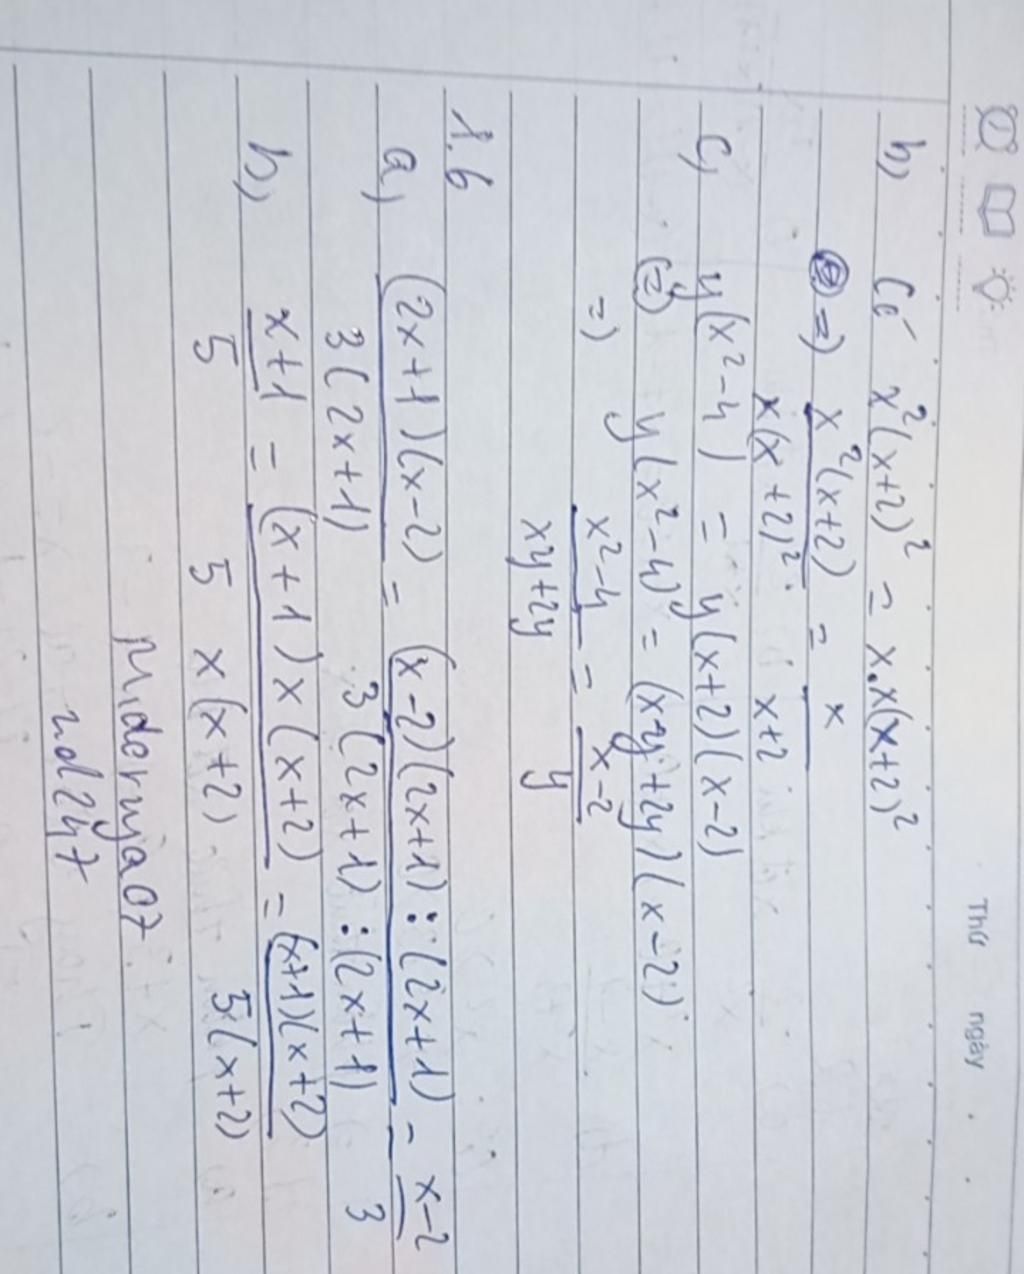 Thứ ngày
b, Có x²(x+2)² = x.x(x+2)²
=) x²(x+2) / x(x+2)² = x / x+2
C, y(x²-4) = y(x+2)(x-2)
(=) y(x²-4) = (xy+2y)(x-2)
=) x²-4 / xy+2y = x-2 / y
1.6
a, (2x+1)(x-2) / 3(2x+1) = (x-2)(2x+1):(2x+1) / 3(2x+1):(2x+1) = x-2 / 3
b, x+1 / 5 = (x+1)x(x+2) / 5x(x+2) = (x+1)(x+2) / 5(x+2)
nd247